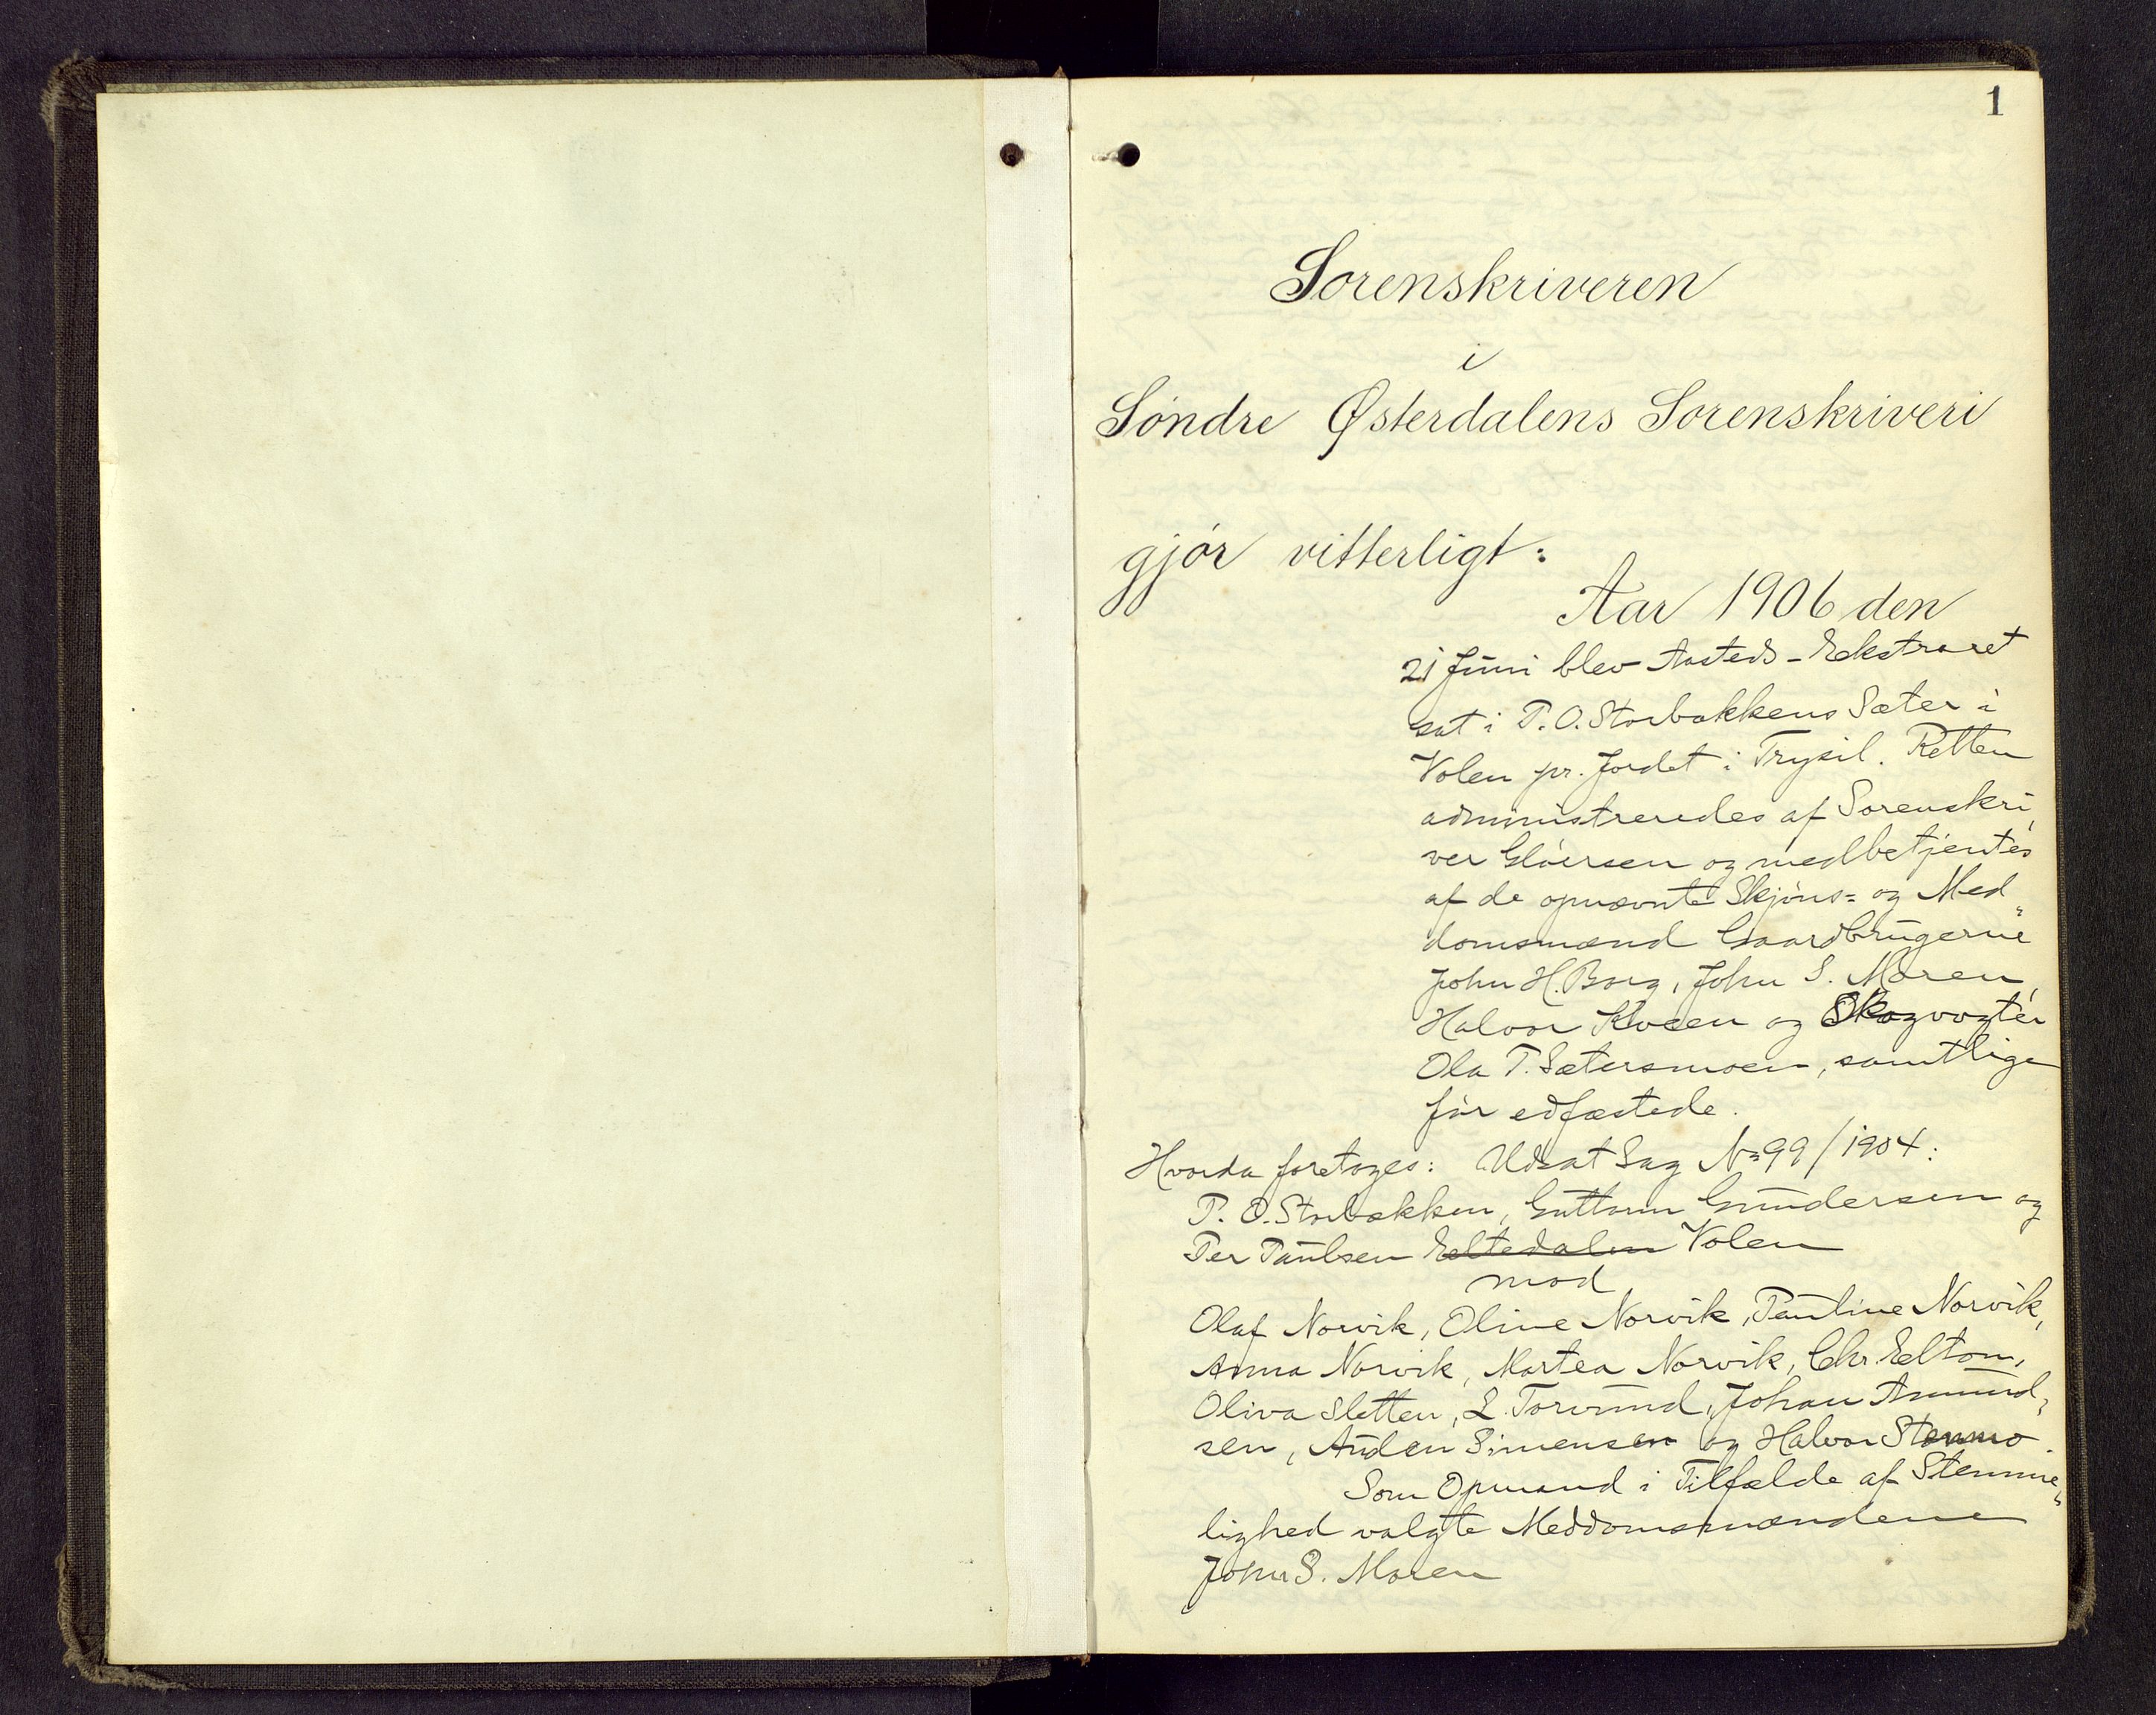 1
Sorenskriveren
i
Søndre Østerdalens Sorenskriveri
gjør vitterligt:
Aar 1906 den
21 Juni blev Aasteds-Ekstraret
sat i P. O. Storbækkens Sæter i
Volen pr. Jordet i Trysil. Retten
administreredes af Sorenskri„
ver Gløersen og medbetjentes
af de opnævnte Skjøns= og Med„
domsmænd Gaardbrugerne
John H. Borg, John S. Moren,
Halvor Kveen og Skogvogter
Ola T. Sætersmoen, samtlige
før edfæstede.
Hvorda foretoges: Udsat Sag No 99/1904:
P. O. Storbækken, Guttorm Gundersen og
Per Paulsen Eltedalen Volen
mod
Olaf Norvik, Oline Norvik, Pauline Norvik,
Anna Norvik, Martea Norvik, Chr. Eltom,
Oliva Sletten, L. Torvund, Johan Asmund„
sen, Auden Simensen og Halvor Stenmo.
Som Opmand i Tilfælde af Stemme„
lighed valgte Meddomsmændene
John S. Moren